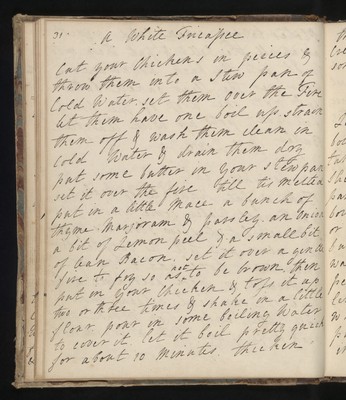 31.
A White Fricassee
Cut your Chickens in pieces &
throw them into a stew pan of
Cold Water, set them over the Fire
let them have one boil up, strain
them off & wash them clean in
cold Water & drain them dry
put some butter in your stewpan
set it over the fire till tis melted
put in a little Mace a bunch of
thyme Marjoram & parsley, an Onion
a bit of Lemon peel & a small bit
of lean Bacon. set it over a gentle
fire to fry so as not to be brown, then
put in your Chicken & toss it up
two or three times & shake in a little
flour pour in some boiling Water
to cover it. let it boil pretty quick
for about 10 Minutes. thicken